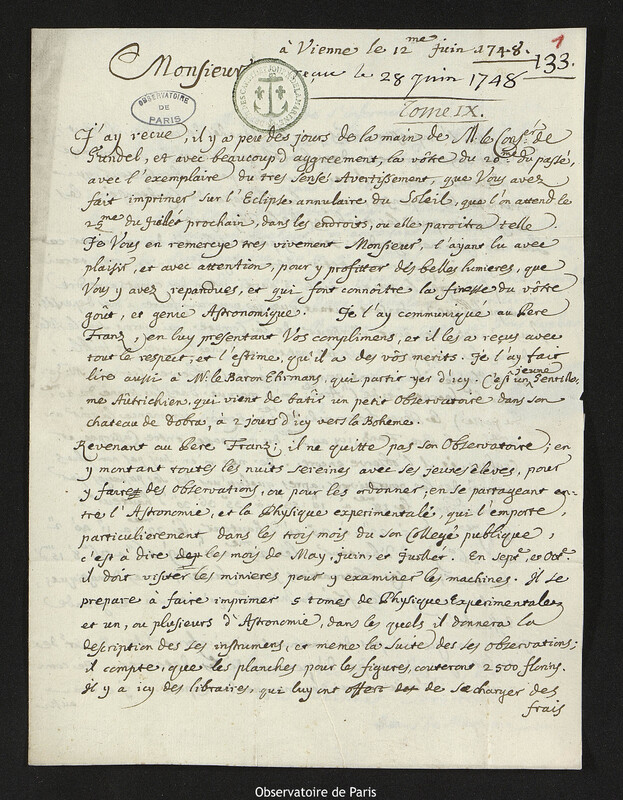 1
à Vienne le 12me Juin 1748.
133.
Monsieur reçue le 28 Juin 1748
Tome IX.
OBSERVATOIRE DE PARIS
J'ay reçue, il y a peu des jours de la main de Mr. le Conser. de
Gundel, et avec beaucoup d'aggreement, la vôtre du 20me du passé,
avec l'exemplaire du tres sensé Avertissement, que Vous avez
fait imprimer sur l'Eclipse annulaire du Soleil, que l'on attend le
25me du Juillet prochain, dans les endroits, ou elle paroitra telle.
Je Vous en remercye tres vivement Monsieur, l'ayant lu avec
plaisir, et avec attention, pour y profitter des belles lumieres, que
Vous y avez repandues, et qui font connoitre la finesse du vôtre
goût, et genie Astronomique. Je l'ay communiqué au Pere
Franz, en luy presentant Vos complimens, et il les a reçus avec
tout le respect, et l'estime, qu'il a des vôs merits. Je l'ay fait
lire aussi à Mr. le Baron Ehrmans, qui partit yer d'icy. C'est un jeune Gentilho-
me Autrichien, qui vient de batir un petit Observatoire dans son
chateau de Dobra, à 2 jours d'icy vers la Boheme.
Revenant au Pere Franz; il ne quitte pas son Observatoire; en
y montant toutes les nuits sereines avec ses jeunes élèves, pour
y faire des observations, ou pour les ordonner, en se partageant en-
tre l'Astronomie, et la Physique experimentale, qui l'emporte,
particulierement dans les trois mois du son Collegé publique,
c'est à dire les mois de May, Juin, et Juillet. En Septe. et Octe.
il doit visiter les minieres pour y examiner les machines. Il se
prepare à faire imprimer 5 tomes de Physique Experimentale
et un, ou plusieurs d'Astronomie, dans les quels il donnera la
description des ses instrumens, et meme la suite des ses observations;
il compte, que les planches pour les figures, couteront 2500 florins.
Il y a icy des libraires, qui luy ont offert de se charger des
frais
Observatoire de Paris